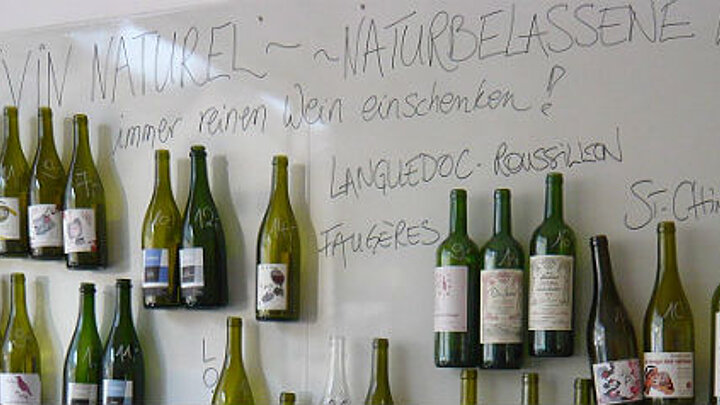 VIN NATUREL ~ ~ NATURBELASSENE
immer reinen Wein einschenken!
LANGUEDOC-ROUSSILLON
FAUGÈRES
ST-CHIN
7.-
12.-
14.-
11.-
LO